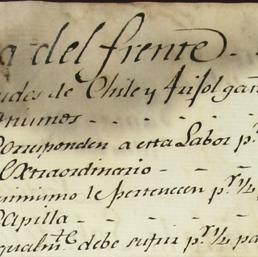 a del frente
udes de Chile y Frisol gar
numos
corresponden a esta Labor pr
Extraordinario
uinismo le pertenecen pr ½
Capilla
qualmte debe sufrir pr ½ pa